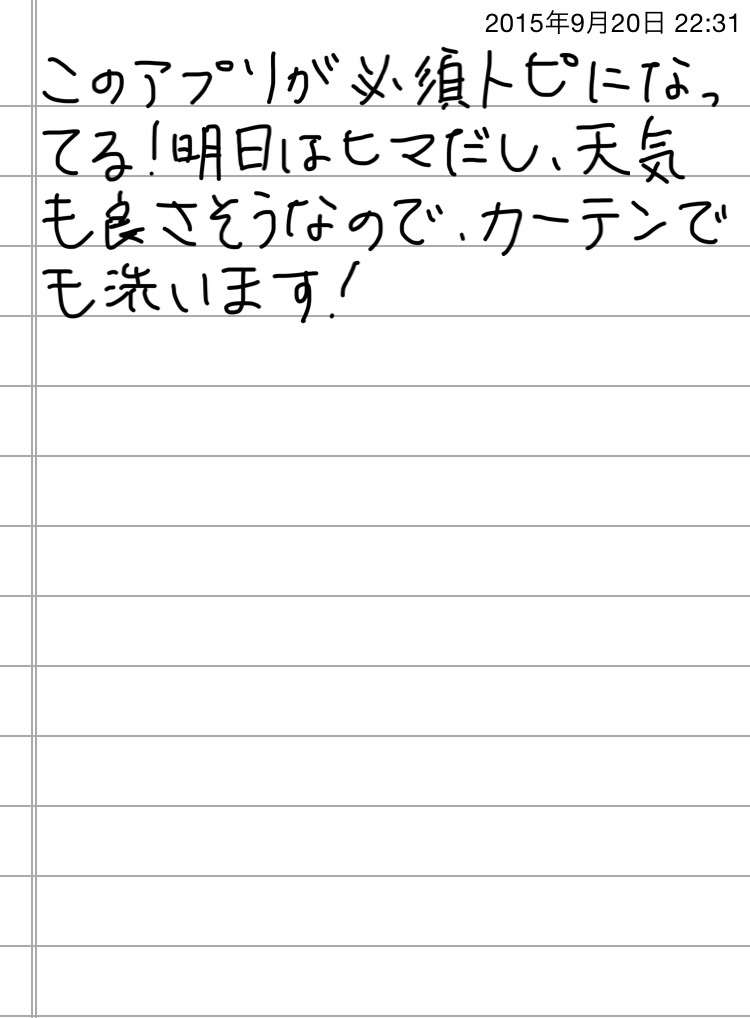 2015年9月20日 22:31
このアプリが必須トピになっ
てる!明日はヒマだし、天気
も良さそうなので、カーテンで
も洗います!